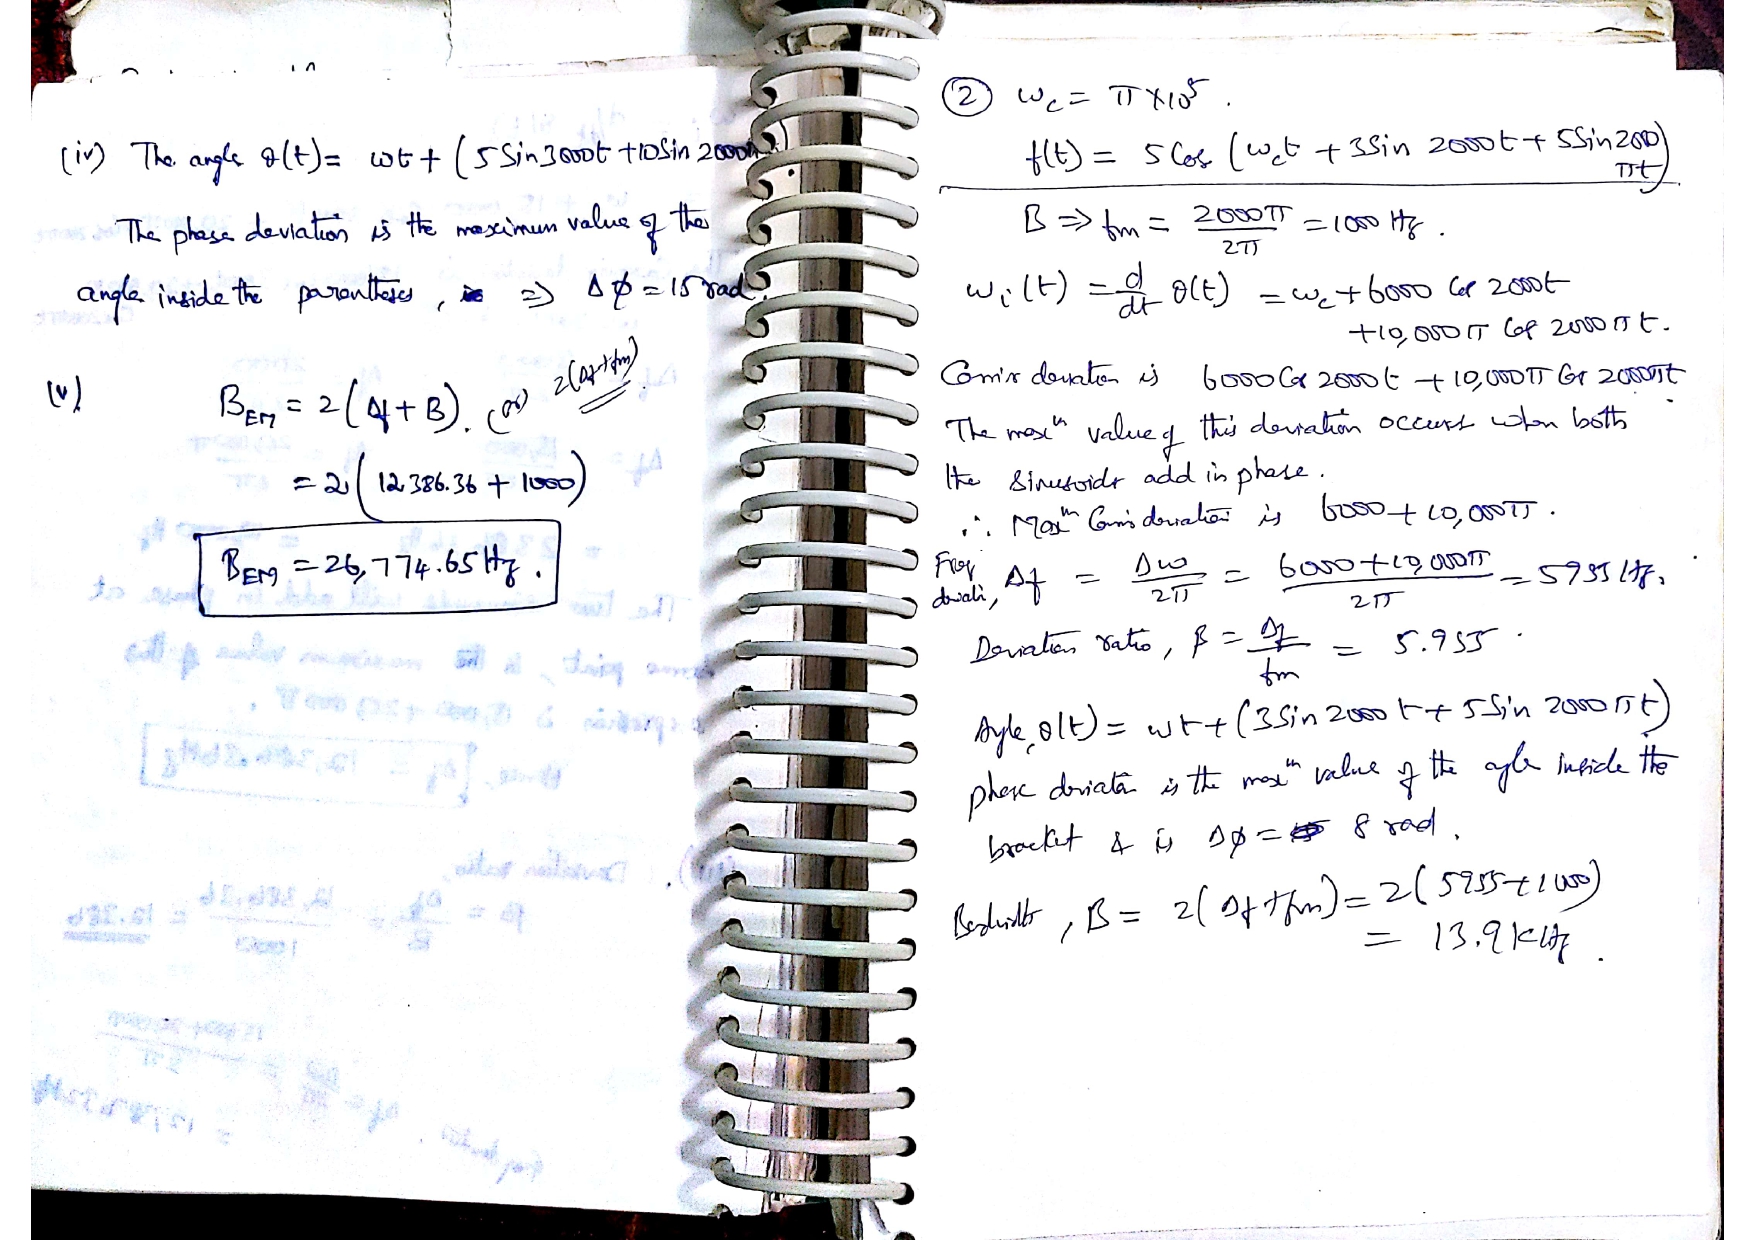 (iv) The angle θ(t) = ωt + (5 Sin 3000t + 10 Sin 2000π
The phase deviation is the maximum value of the
angle inside the parentheses, ⇒ Δφ = 15 rad.
(v) B_EM = 2(Δf + B). (or) 2(Δf + fm)
= 2(12386.36 + 1000)
B_EM = 26,774.65 Hz.
② ω_c = π × 10⁵.
f(t) = 5 Cos (ω_c t + 3 Sin 2000t + 5 Sin 2000
πt)
B ⇒ fm = 2000π / 2π = 1000 Hz.
ω_i(t) = d/dt θ(t) = ω_c + 6000 Cos 2000t
+ 10,000π Cos 2000πt.
deviation is 6000 Cos 2000t + 10,000π Cos 2000πt
The maxᵐ value of this deviation occurs when both
the Sinusoids add in phase.
∴ Maxᵐ deviation is 6000 + 10,000π.
Freq
Δf = Δω / 2π = 6000 + 10,000π / 2π = 5955 Hz.
Deviation ratio, β = Δf / fm = 5.955.
Angle, θ(t) = ωt + (3 Sin 2000t + 5 Sin 2000πt)
phase deviation is the maxᵐ value of the angle inside the
bracket & is Δφ = 8 rad.
Bandwidth, B = 2(Δf + fm) = 2(5955 + 1000)
= 13.9 KHz.